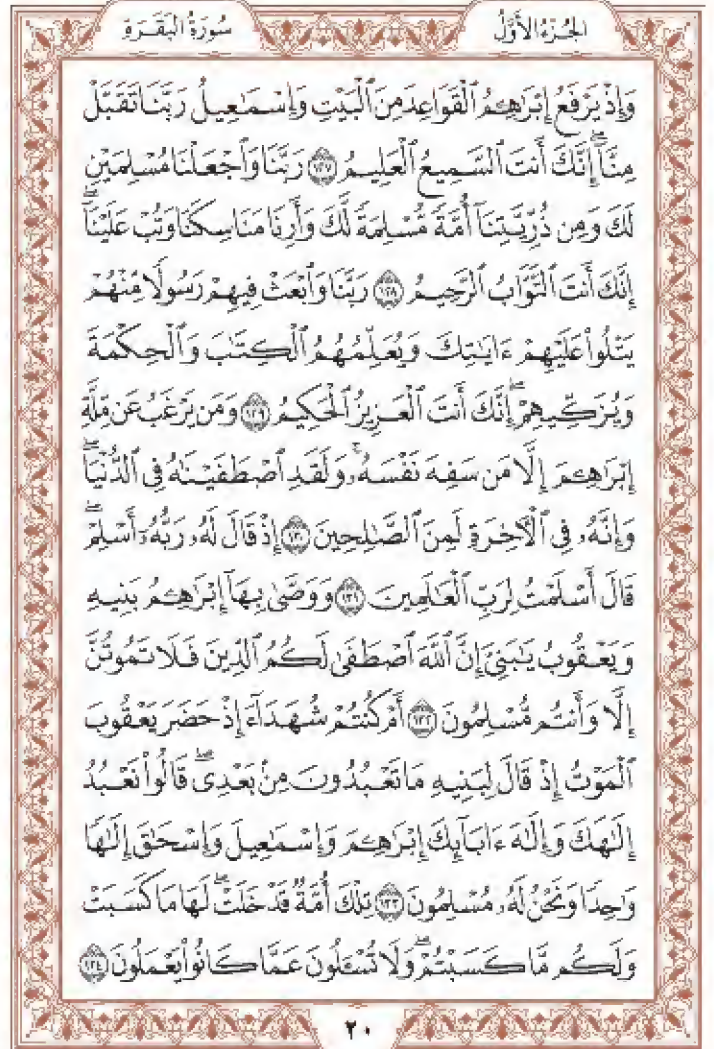 الجُزْءُ الأَوَّلُ
سُورَةُ البَقَرَةِ
وَإِذْ يَرْفَعُ إِبْرَٰهِـۧمُ ٱلْقَوَاعِدَ مِنَ ٱلْبَيْتِ وَإِسْمَٰعِيلُ رَبَّنَا تَقَبَّلْ
مِنَّآ ۖ إِنَّكَ أَنتَ ٱلسَّمِيعُ ٱلْعَلِيمُ ١٢٧ رَبَّنَا وَٱجْعَلْنَا مُسْلِمَيْنِ
لَكَ وَمِن ذُرِّيَّتِنَآ أُمَّةً مُّسْلِمَةً لَّكَ وَأَرِنَا مَنَاسِكَنَا وَتُبْ عَلَيْنَآ ۖ
إِنَّكَ أَنتَ ٱلتَّوَّابُ ٱلرَّحِيمُ ١٢٨ رَبَّنَا وَٱبْعَثْ فِيهِمْ رَسُولًا مِّنْهُمْ
يَتْلُوا۟ عَلَيْهِمْ ءَايَٰتِكَ وَيُعَلِّمُهُمُ ٱلْكِتَٰبَ وَٱلْحِكْمَةَ
وَيُزَكِّيهِمْ ۖ إِنَّكَ أَنتَ ٱلْعَزِيزُ ٱلْحَكِيمُ ١٢٩ وَمَن يَرْغَبُ عَن مِّلَّةِ
إِبْرَٰهِـۧمَ إِلَّا مَن سَفِهَ نَفْسَهُۥ ۚ وَلَقَدِ ٱصْطَفَيْنَٰهُ فِى ٱلدُّنْيَا ۖ
وَإِنَّهُۥ فِى ٱلْـَٔاخِرَةِ لَمِنَ ٱلصَّٰلِحِينَ ١٣٠ إِذْ قَالَ لَهُۥ رَبُّهُۥٓ أَسْلِمْ ۖ
قَالَ أَسْلَمْتُ لِرَبِّ ٱلْعَٰلَمِينَ ١٣١ وَوَصَّىٰ بِهَآ إِبْرَٰهِـۧمُ بَنِيهِ
وَيَعْقُوبُ يَٰبَنِىَّ إِنَّ ٱللَّهَ ٱصْطَفَىٰ لَكُمُ ٱلدِّينَ فَلَا تَمُوتُنَّ
إِلَّا وَأَنتُم مُّسْلِمُونَ ١٣٢ أَمْ كُنتُمْ شُهَدَآءَ إِذْ حَضَرَ يَعْقُوبَ
ٱلْمَوْتُ إِذْ قَالَ لِبَنِيهِ مَا تَعْبُدُونَ مِنۢ بَعْدِى ۖ قَالُوا۟ نَعْبُدُ
إِلَٰهَكَ وَإِلَٰهَ ءَابَآئِكَ إِبْرَٰهِـۧمَ وَإِسْمَٰعِيلَ وَإِسْحَٰقَ إِلَٰهًا
وَٰحِدًا وَنَحْنُ لَهُۥ مُسْلِمُونَ ١٣٣ تِلْكَ أُمَّةٌ قَدْ خَلَتْ ۖ لَهَا مَا كَسَبَتْ
وَلَكُم مَّا كَسَبْتُمْ ۖ وَلَا تُسْـَٔلُونَ عَمَّا كَانُوا۟ يَعْمَلُونَ ١٣٤
٢٠